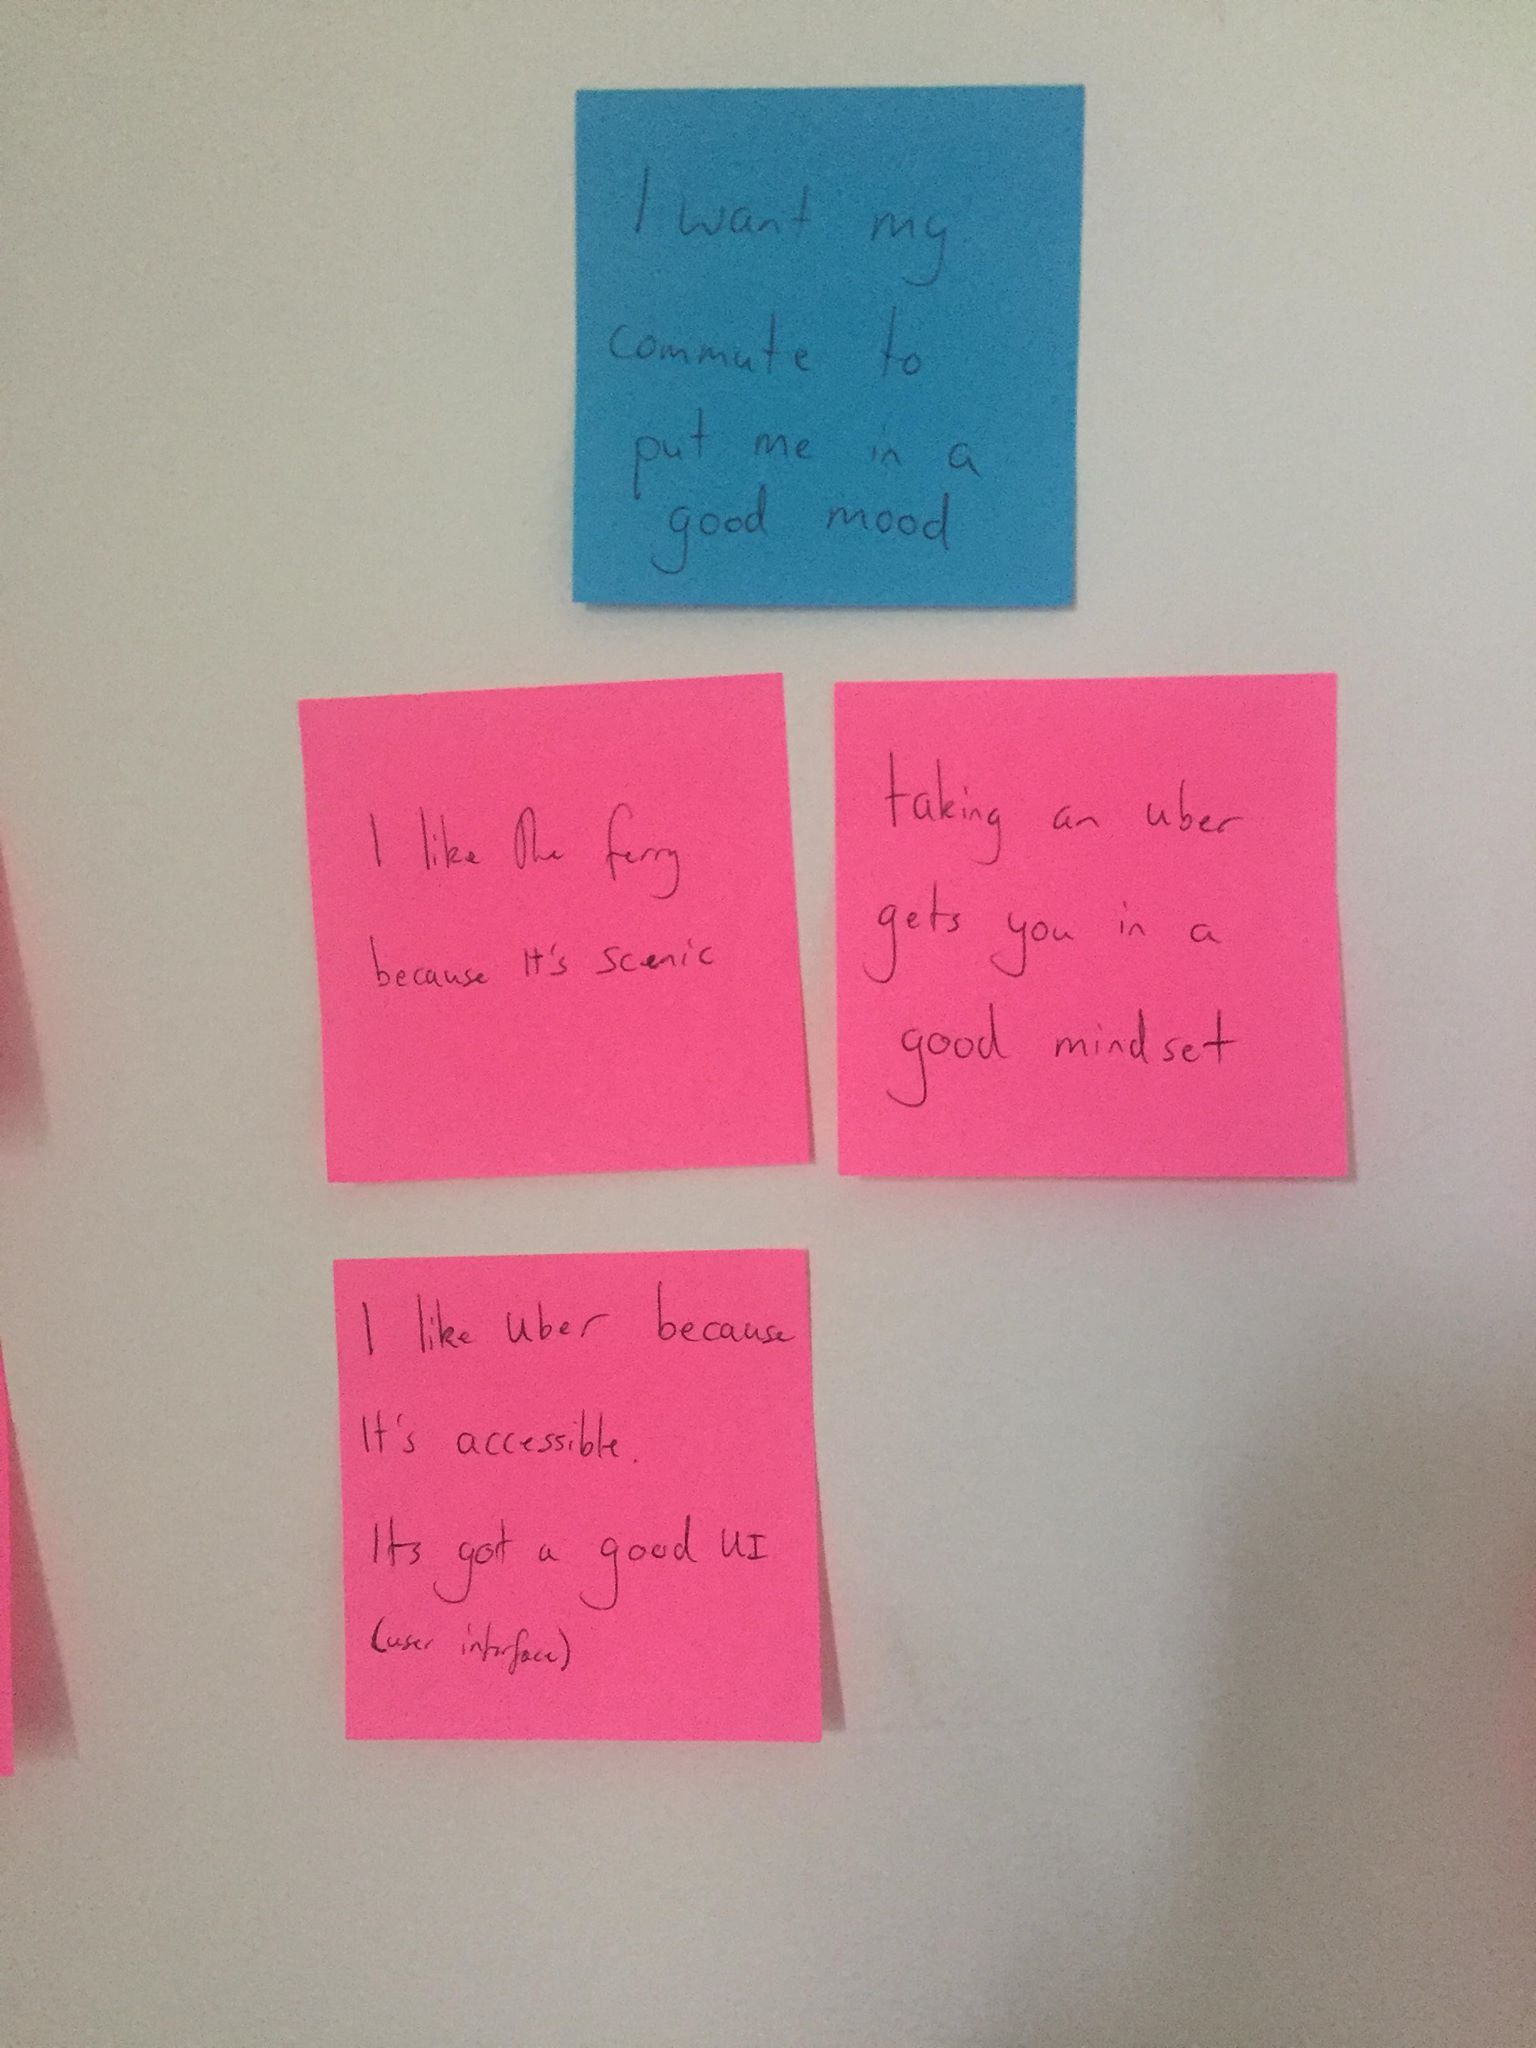 I want my
commute to
put me in a
good mood
I like the ferry
because It's scenic
taking an uber
gets you in a
good mindset
I like Uber because
It's accessible.
Its got a good UI
(user interface)